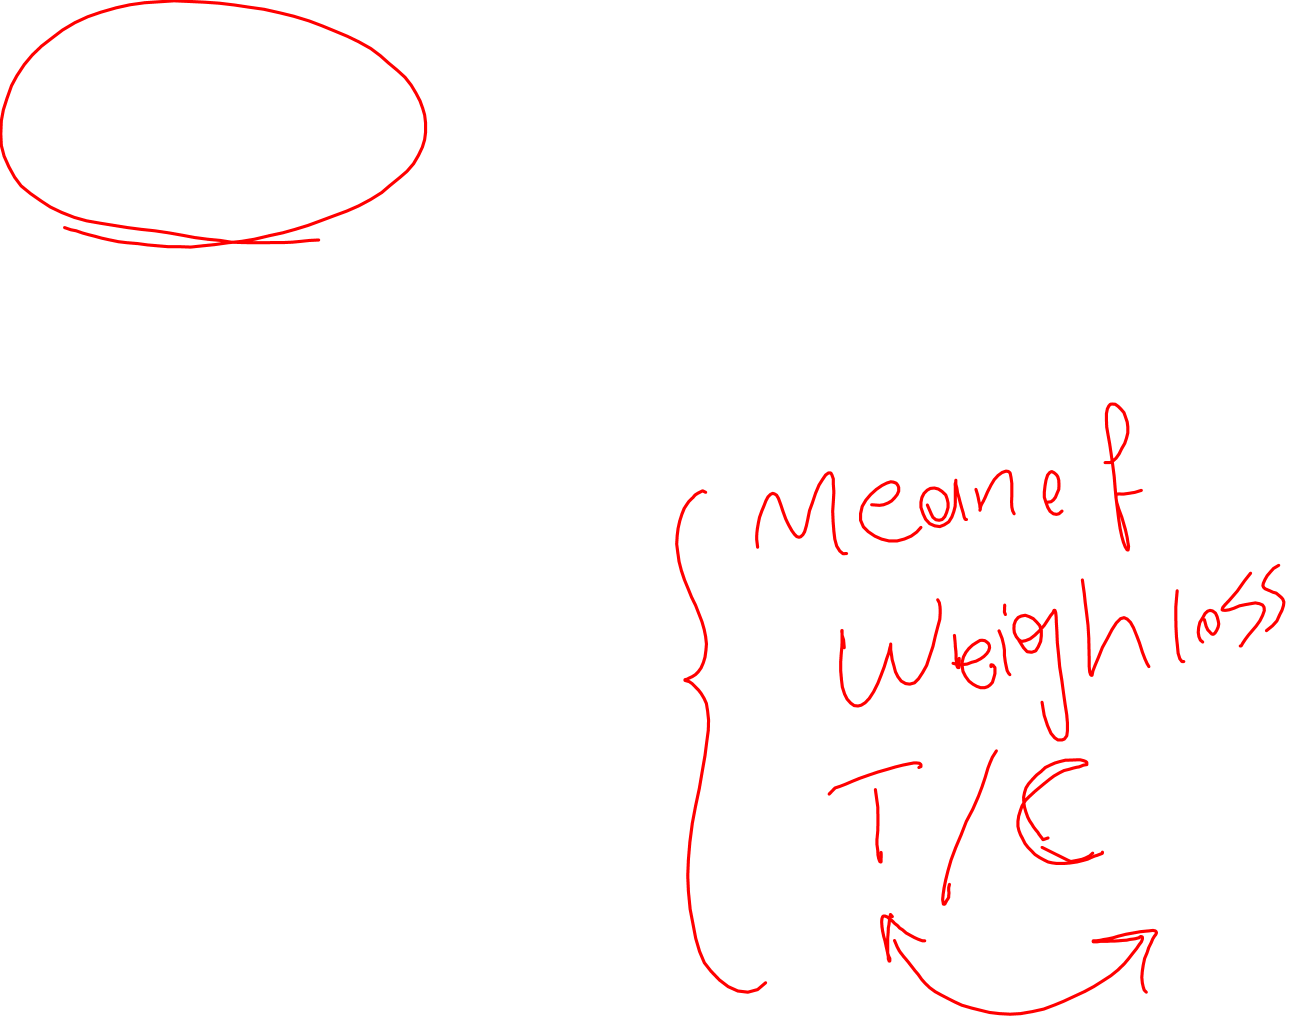 Mean ef
Weigh loss
T/C